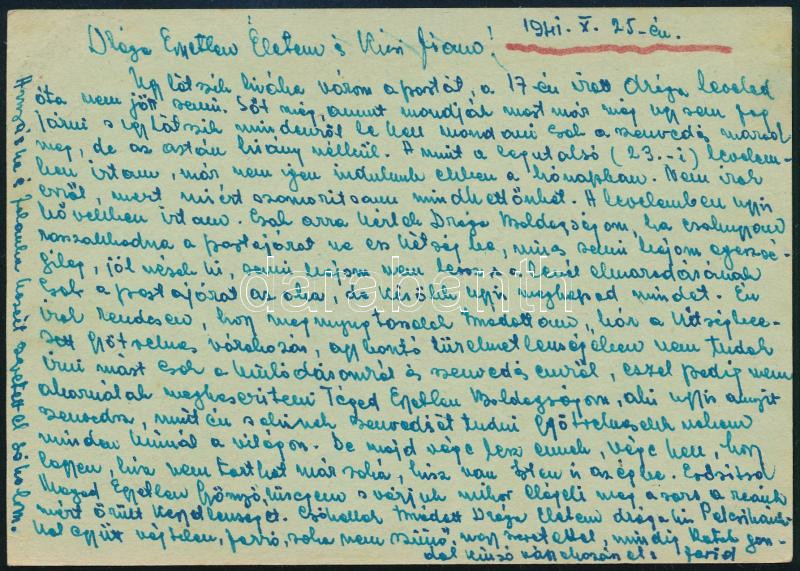 1941. X. 25-én.
Drága Egyetlen Életem és Kicsi fiam!
Úgy látszik hiába várom a postát, a 17-én írott drága leveled
óta nem jött semmi. Sőt még, amint mondják most már még úgy sem fog
járni s úgy látszik mindenről le kell mondani csak a szenvedés marad
meg, de az aztán hiány nélkül. Amint a legutolsó (23.-i) levelem-
ben írtam, már nem igen indulunk ebben a hónapban. Nem írok
erről, mert miért szomorítsam mindkettőnket. A levelemben úgyis
bővebben írtam. Csak arra kérlek Drága Boldogságom, ha csakugyan
rosszabbodna a postajárat ne ess kétségbe, nincs semmi bajom egészsé-
gileg, jól nézek ki, semmi bajom nem lesz s a levél elmaradásának
csak a postajárat az oka, de később úgyis megkapod mindet. Én
írok rendesen, hogy megnyugtassalak Imádottam, bár a kétségbee-
sett gyötrelmes várakozás, agybontó türelmetlenségében nem tudok
írni mást csak a kínlódásomról és szenvedésemről, ezzel pedig nem
akarnálak megkeseríteni Téged Egyetlen Boldogságom, aki úgyis annyit
szenvedsz, mint én s akinek szenvedését tudni gyötrelmesebb nekem
minden kínnál a világon. De majd vége lesz ennek, vége kell, hogy
legyen, hisz nem tarthat már soká, hisz van Isten is az égbe. Erősítsd
Magad Egyetlen Gyönyörűségem s várjuk mikor elégeli meg a sors a reánk
mért őrült kegyetlenséget. Csókollak Imádott Drága Életem drága kis Palcsikánk-
kal együtt végtelen, forró, soha nem szűnő nagy szeretettel, mindig Rátok gon-
dol kínzó várakozással:
darabanth